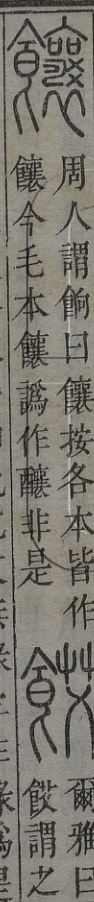 饟
周人謂餉曰饟按各本皆作
饟今毛本饟譌作釀非是
爾雅曰
餀謂之